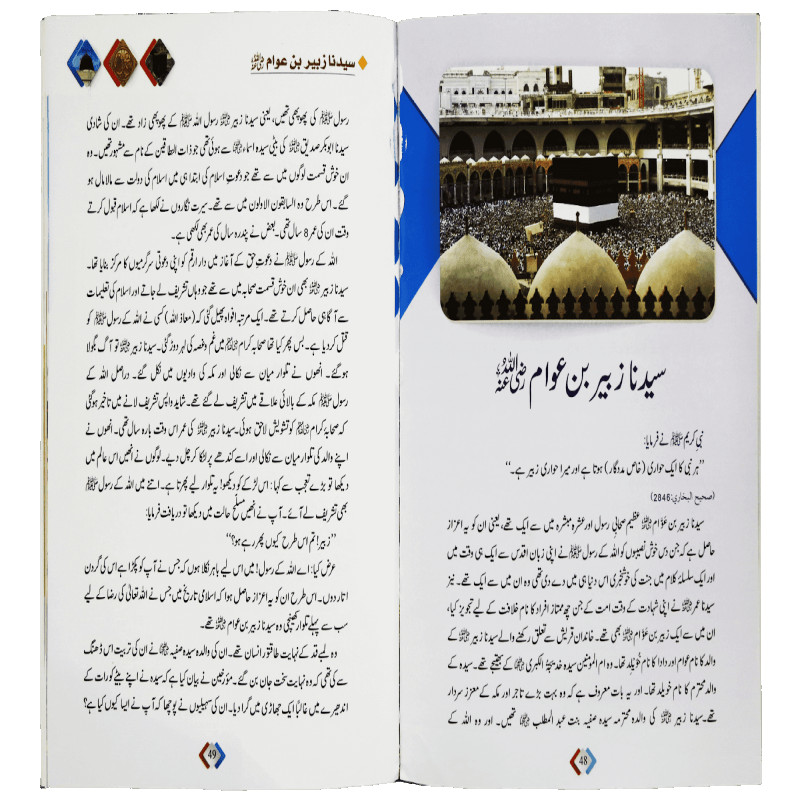 سیدنا زبیر بن عوام رضی اللہ عنہ
نبی کریم ﷺ نے فرمایا:
”ہر نبی کا ایک حواری (خاص مددگار) ہوتا ہے اور میرا حواری زبیر ہے۔“
(صحیح البخاري:2846)
سیدنا زبیر بن عَوَّام رضی اللہ عنہ عظیم صحابیِ رسول اور عشرہ مبشرہ میں سے ایک تھے، یعنی ان کو یہ اعزاز
حاصل ہے کہ جن دس خوش نصیبوں کو اللہ کے رسول ﷺ نے اپنی زبانِ اقدس سے ایک ہی وقت میں
اور ایک سلسلۂ کلام میں جنت کی خوشخبری اس دنیا ہی میں دے دی تھی وہ ان میں سے ایک تھے۔ نیز
سیدنا عمر رضی اللہ عنہ نے اپنی شہادت کے وقت امت کے جن چھ ممتاز افراد کا نام خلافت کے لیے تجویز کیا،
ان میں سے ایک زبیر بن عوام رضی اللہ عنہ بھی تھے۔ خاندانِ قریش سے تعلق رکھنے والے سیدنا زبیر رضی اللہ عنہ کے
والد کا نام عوام اور دادا کا نام خویلد تھا۔ وہ ام المومنین سیدہ خدیجۃ الکبریٰ رضی اللہ عنہا کے بھتیجے تھے۔ سیدہ کے
والد محترم کا نام خویلد تھا۔ اور یہ بات معروف ہے کہ وہ بہت بڑے تاجر اور مکہ کے معزز سردار
تھے۔ سیدنا زبیر رضی اللہ عنہ کی والدہ محترمہ سیدہ صفیہ بنت عبد المطلب رضی اللہ عنہا تھیں۔ اور وہ اللہ کے
48
سیدنا زبیر بن عوام رضی اللہ عنہ
رسول ﷺ کی پھوپھی تھیں، یعنی سیدنا زبیر رضی اللہ عنہ رسول اللہ ﷺ کے پھوپھی زاد تھے۔ ان کی شادی
سیدنا ابوبکر صدیق رضی اللہ عنہ کی بیٹی سیدہ اسماء رضی اللہ عنہا سے ہوئی تھی جو ذات النطاقین کے نام سے مشہور تھیں۔ وہ
ان خوش قسمت لوگوں میں سے تھے جو دعوتِ اسلام کی ابتدا ہی میں اسلام کی دولت سے مالامال ہو
گئے۔ اس طرح وہ السابقون الاولون میں سے تھے۔ سیرت نگاروں نے لکھا ہے کہ اسلام قبول کرتے
وقت ان کی عمر 8 سال تھی۔ بعض نے پندرہ سال کی عمر بھی لکھی ہے۔
اللہ کے رسول ﷺ نے دعوتِ حق کے آغاز میں دارِ ارقم کو اپنی دعوتی سرگرمیوں کا مرکز بنایا تھا۔
سیدنا زبیر رضی اللہ عنہ بھی ان خوش قسمت صحابہ میں سے تھے جو وہاں تشریف لے جاتے اور اسلام کی تعلیمات
سے آگاہی حاصل کرتے تھے۔ ایک مرتبہ افواہ پھیل گئی کہ (معاذ اللہ) کسی نے اللہ کے رسول ﷺ کو
قتل کر دیا ہے۔ بس پھر کیا تھا صحابہ کرام رضی اللہ عنہم میں غم و غصہ کی لہر دوڑ گئی۔ سیدنا زبیر رضی اللہ عنہ تو آگ بگولا
ہو گئے۔ انھوں نے تلوار میان سے نکالی اور مکہ کی وادیوں میں نکل گئے۔ دراصل اللہ کے
رسول ﷺ مکہ کے بالائی علاقے میں تشریف لے گئے تھے۔ شاید واپس تشریف لانے میں تاخیر ہو گئی
کہ صحابہ کرام رضی اللہ عنہم کو تشویش لاحق ہوئی۔ سیدنا زبیر رضی اللہ عنہ کی عمر اس وقت بارہ سال تھی۔ انھوں نے
اپنے والد کی تلوار میان سے نکالی اور اسے کندھے پر لٹکا کر چل دیے۔ لوگوں نے انھیں اس عالم میں
دیکھا تو بڑے تعجب سے کہا: اس لڑکے کو دیکھو! یہ تلوار لیے پھرتا ہے۔ اتنے میں اللہ کے رسول ﷺ
بھی تشریف لے آئے۔ آپ نے انھیں مسلح حالت میں دیکھا تو دریافت فرمایا:
”زبیر! تم اس طرح کیوں پھر رہے ہو؟“
عرض کیا: اے اللہ کے رسول! میں اس لیے باہر نکلا ہوں کہ جس نے آپ کو پکڑا ہے اس کی گردن
اتار دوں۔ اس طرح ان کو یہ اعزاز حاصل ہوا کہ اسلامی تاریخ میں جس نے اللہ تعالیٰ کی رضا کے لیے
سب سے پہلے تلوار کھینچی وہ سیدنا زبیر بن عوام رضی اللہ عنہ تھے۔
وہ لمبے قد کے نہایت طاقتور انسان تھے۔ ان کی والدہ سیدہ صفیہ رضی اللہ عنہا نے ان کی تربیت اس ڈھنگ
سے کی تھی کہ وہ نہایت سخت جان بن گئے۔ مؤرخین نے بیان کیا ہے کہ سیدہ نے اپنے بیٹے کو رات کے
اندھیرے میں غالباً ایک جھاڑی میں گرا دیا۔ ان کی سہیلیوں نے پوچھا کہ آپ نے ایسا کیوں کیا ہے؟
49